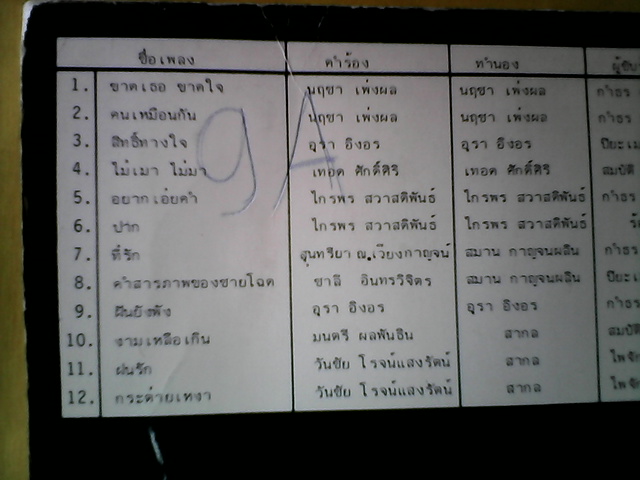 ชื่อเพลง คำร้อง ทำนอง
1. ขาดเธอ ขาดใจ นฤชา เพ่งผล นฤชา เพ่งผล กำธร
2. คนเหมือนกัน นฤชา เพ่งผล นฤชา เพ่งผล กำธร
3. สิทธิ์ทางใจ อุรา อิงอร อุรา อิงอร
4. ไม่เมา ไม่มา เทอด ศักดิ์ศิริ เทอด ศักดิ์ศิริ สมบัติ
5. อยากเอ่ยคำ ไกรพร สวาสดิพันธ์ ไกรพร สวาสดิพันธ์ กำธร
6. ปาก ไกรพร สวาสดิพันธ์ ไกรพร สวาสดิพันธ์
7. ที่รัก สุนทรียา ณ.เวียงกาญจน์ สมาน กาญจนผลิน กำธร
8. คำสารภาพของชายโฉด ชาลี อินทรวิจิตร สมาน กาญจนผลิน
9. ฝันยังฟัง อุรา อิงอร อุรา อิงอร กำธร
10. งามเหลือเกิน มนตรี ผลพันธิน สากล
11. ฝนรัก วันชัย โรจน์แสงรัตน์ สากล
12. กระต่ายเหงา วันชัย โรจน์แสงรัตน์ สากล
9A